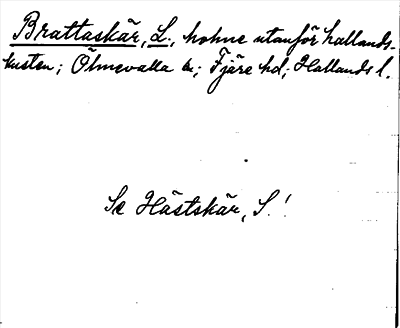 Brattaskär, L., holme utanför hallands-
kusten; Ölmevalla sn; Fjäre hd; Hallands l.
Se Hästskär, S.!